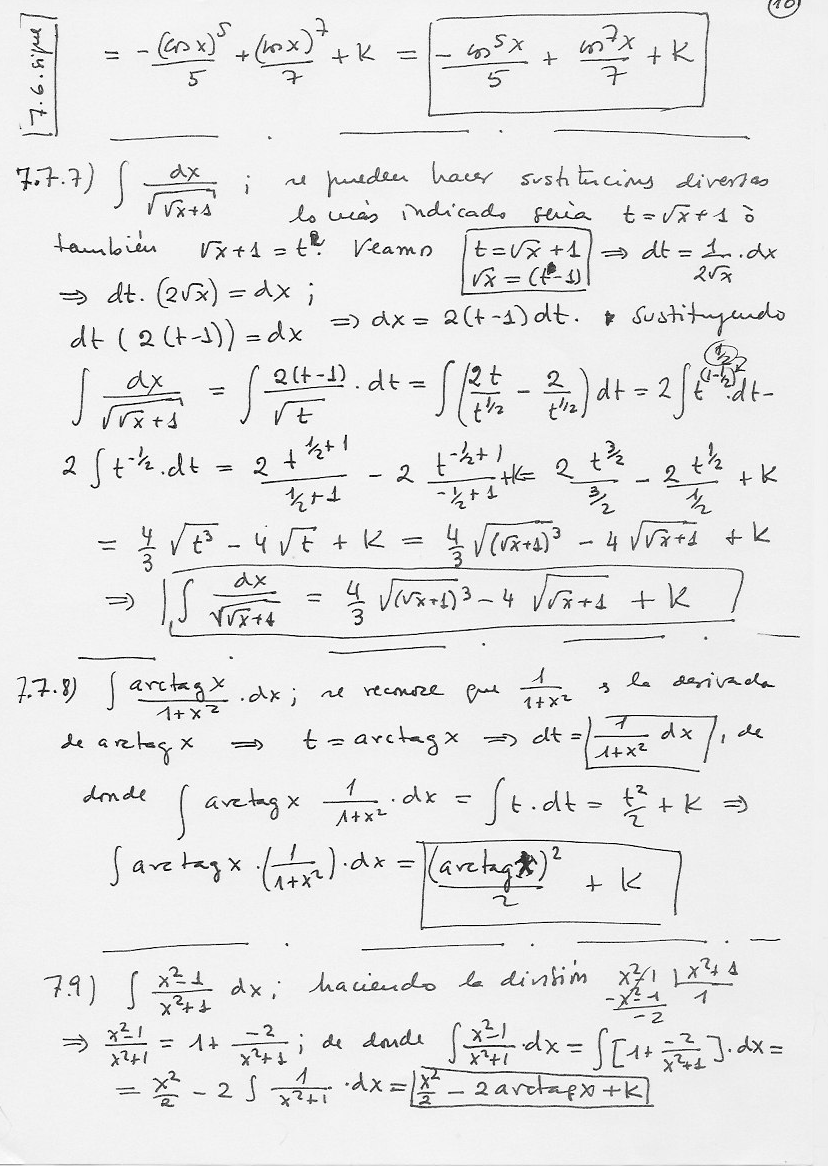 10
7.6. sigue
= -(cos x)^5/5 + (cos x)^7/7 + K = - cos^5 x/5 + cos^7 x/7 + K
7.7.7) ∫ dx/√(√x+1) ; se pueden hacer sustitucions diversas
lo más indicado seria t = √x + 1 ò
también √x+1 = t². Veamos t = √x + 1 ⇒ dt = 1/(2√x) · dx
√x = (t-1)
⇒ dt. (2√x) = dx ;
dt (2(t-1)) = dx ⇒ dx = 2(t-1) dt. sustituyendo
∫ dx/√(√x+1) = ∫ 2(t-1)/√t · dt = ∫ (2t/t^(1/2) - 2/t^(1/2)) dt = 2 ∫ t^(1-1/2) · dt -
1/2
2 ∫ t^(-1/2) · dt = 2 t^(1/2+1)/(1/2+1) - 2 t^(-1/2+1)/(-1/2+1) + K = 2 t^(3/2)/(3/2) - 2 t^(1/2)/(1/2) + K
= 4/3 √(t³) - 4 √t + K = 4/3 √((√x+1)³) - 4 √(√x+1) + K
⇒ ∫ dx/√(√x+1) = 4/3 √(√x+1)³ - 4 √(√x+1) + K
7.7.8) ∫ arctag x/(1+x²) · dx ; se reconoce que 1/(1+x²) es la derivada
de arctag x ⇒ t = arctag x ⇒ dt = 1/(1+x²) dx , de
donde ∫ arctag x 1/(1+x²) · dx = ∫ t · dt = t²/2 + K ⇒
∫ arctag x · (1/(1+x²)) · dx = (arctag x)²/2 + K
7.9) ∫ (x²-1)/(x²+1) dx ; haciendo la división x²-1 | x²+1
-x²-1 1
-2
⇒ (x²-1)/(x²+1) = 1 + -2/(x²+1) ; de donde ∫ (x²-1)/(x²+1) · dx = ∫ [1 + -2/(x²+1)] · dx =
= x²/2 - 2 ∫ 1/(x²+1) · dx = x²/2 - 2 arctag x + K